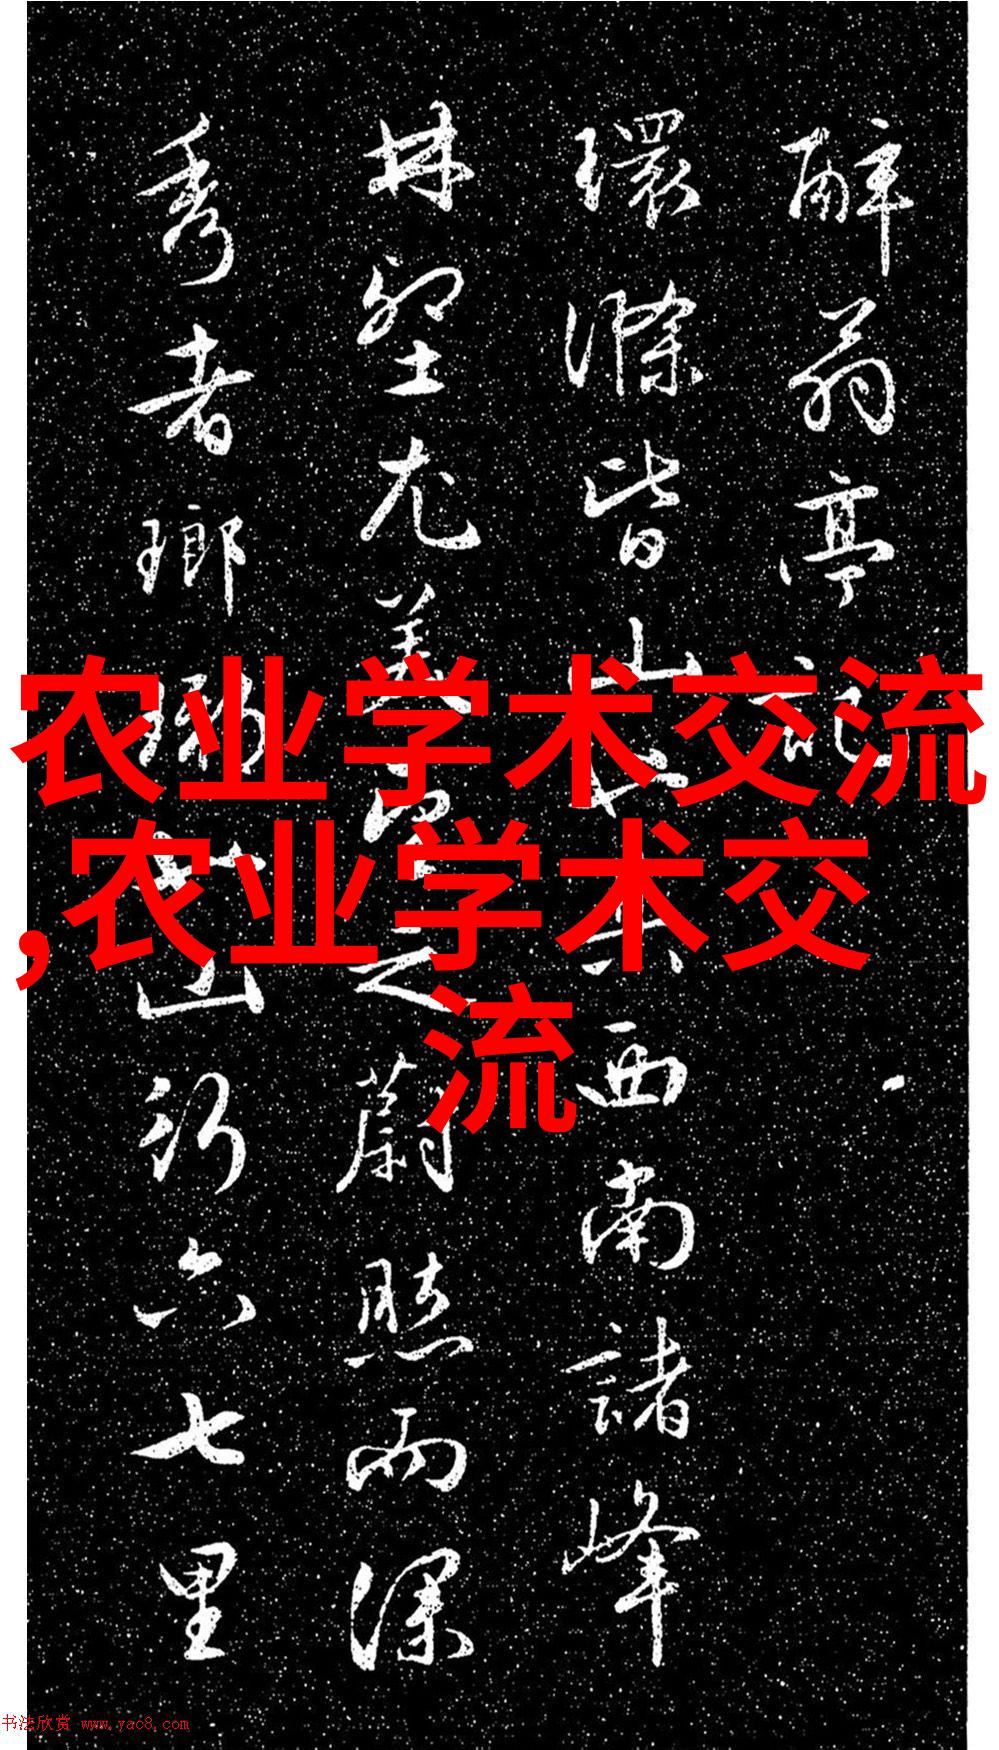 醉翁亭記
環滁皆山 西南諸峰
林壑尤美 之蔚然而深
秀者瑯琊 山行六七里
农业学术交流
,农业学术交
流
书法欣赏 www.yac8.com